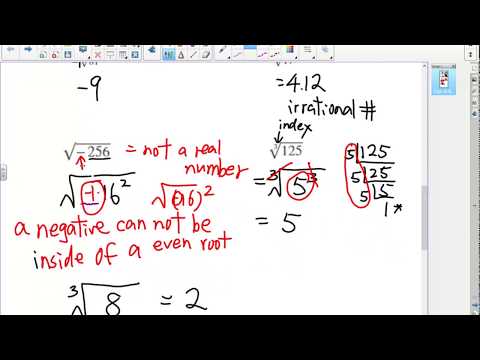 -9
= 4.12
irrational #
index
√-256 = not a real number
√-1·16²
√(-16)²
a negative can not be
inside of a even root
∛125
= ∛5³
= 5
5 125
5 25
5 5
1*
∛8 = 2